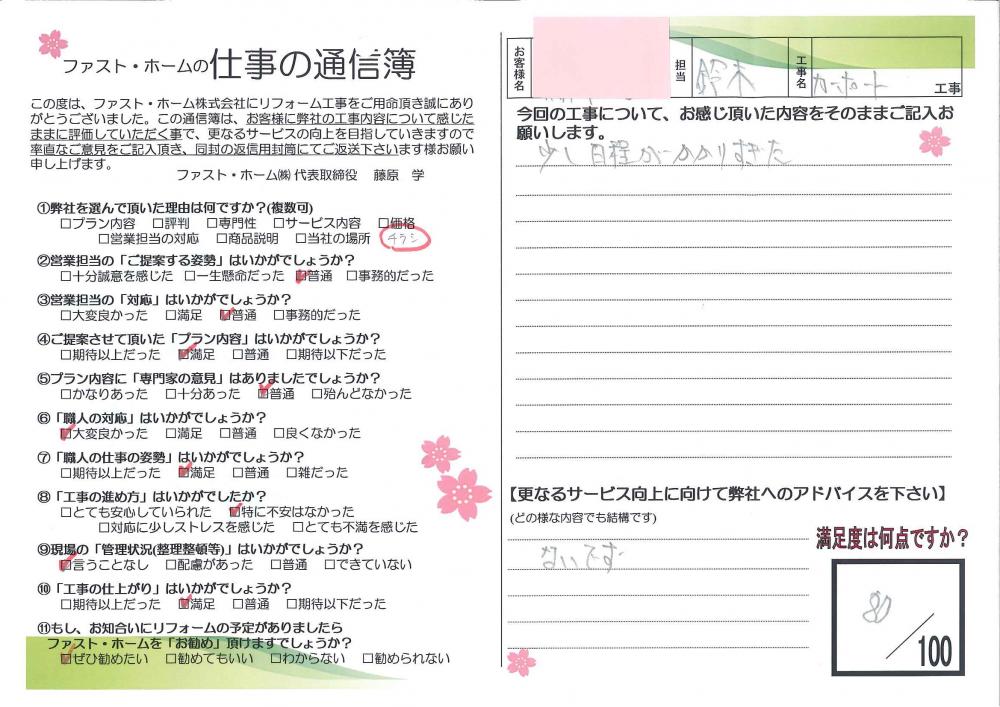 ファスト・ホームの仕事の通信簿
この度は、ファスト・ホーム株式会社にリフォーム工事をご用命頂き誠にあり
がとうございました。この通信簿は、お客様に弊社の工事内容について感じた
ままに評価していただく事で、更なるサービスの向上を目指していきますので
率直なご意見をご記入頂き、同封の返信用封筒にてご返送下さいます様お願い
申し上げます。
ファスト・ホーム㈱ 代表取締役 藤原 学
①弊社を選んで頂いた理由は何ですか?(複数可)
□プラン内容 □評判 □専門性 □サービス内容 □価格
□営業担当の対応 □商品説明 □当社の場所 チラシ
②営業担当の「ご提案する姿勢」はいかがでしょうか?
□十分誠意を感じた □一生懸命だった ☑普通 □事務的だった
③営業担当の「対応」はいかがでしょうか?
□大変良かった □満足 ☑普通 □事務的だった
④ご提案させて頂いた「プラン内容」はいかがでしょうか?
□期待以上だった ☑満足 □普通 □期待以下だった
⑤プラン内容に「専門家の意見」はありましたでしょうか?
□かなりあった □十分あった ☑普通 □殆んどなかった
⑥「職人の対応」はいかがでしょうか?
☑大変良かった □満足 □普通 □良くなかった
⑦「職人の仕事の姿勢」はいかがでしょうか?
□期待以上だった ☑満足 □普通 □雑だった
⑧「工事の進め方」はいかがでしたか?
□とても安心していられた ☑特に不安はなかった
□対応に少しストレスを感じた □とても不満を感じた
⑨現場の「管理状況(整理整頓等)」はいかがでしょうか?
☑言うことなし □配慮があった □普通 □できていない
⑩「工事の仕上がり」はいかがでしょうか?
□期待以上だった ☑満足 □普通 □期待以下だった
⑪もし、お知合いにリフォームの予定がありましたら
ファスト・ホームを「お勧め」頂けますでしょうか?
☑ぜひ勧めたい □勧めてもいい □わからない □勧められない
お客様名 担当 鈴木 工事名 カーポート 工事
今回の工事について、お感じ頂いた内容をそのままご記入お
願いします。
少し日程がかかりすぎた
【更なるサービス向上に向けて弊社へのアドバイスを下さい】
(どの様な内容でも結構です)
ないです
満足度は何点ですか?
80/100